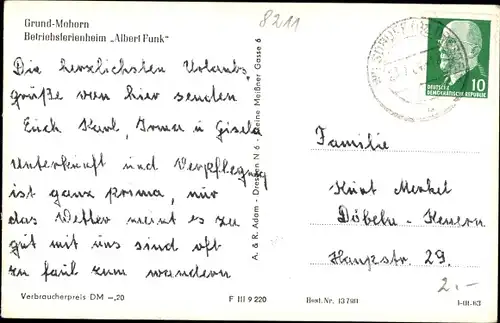 Grund-Mohorn
Betriebsferienheim „Albert Funk"
8211
Die herzlichsten Urlaubs,
grüße von hier senden
Euch Karl, Irma u Gisela
Unterkunft und Verpflegung
ist ganz prima, nur
das Wetter meint es zu
gut mit uns sind oft
zu faul zum wandern
Verbraucherpreis DM –,20
A. & R. Adam - Dresden N 6 - Kleine Meißner Gasse 6
F III 9 220
DEUTSCHE
DEMOKRATISCHE REPUBLIK
10
Familie
Kurt Merkel
Döbeln -
Hauptstr. 29.
2.-
Best.Nr. 13780
I-01.63